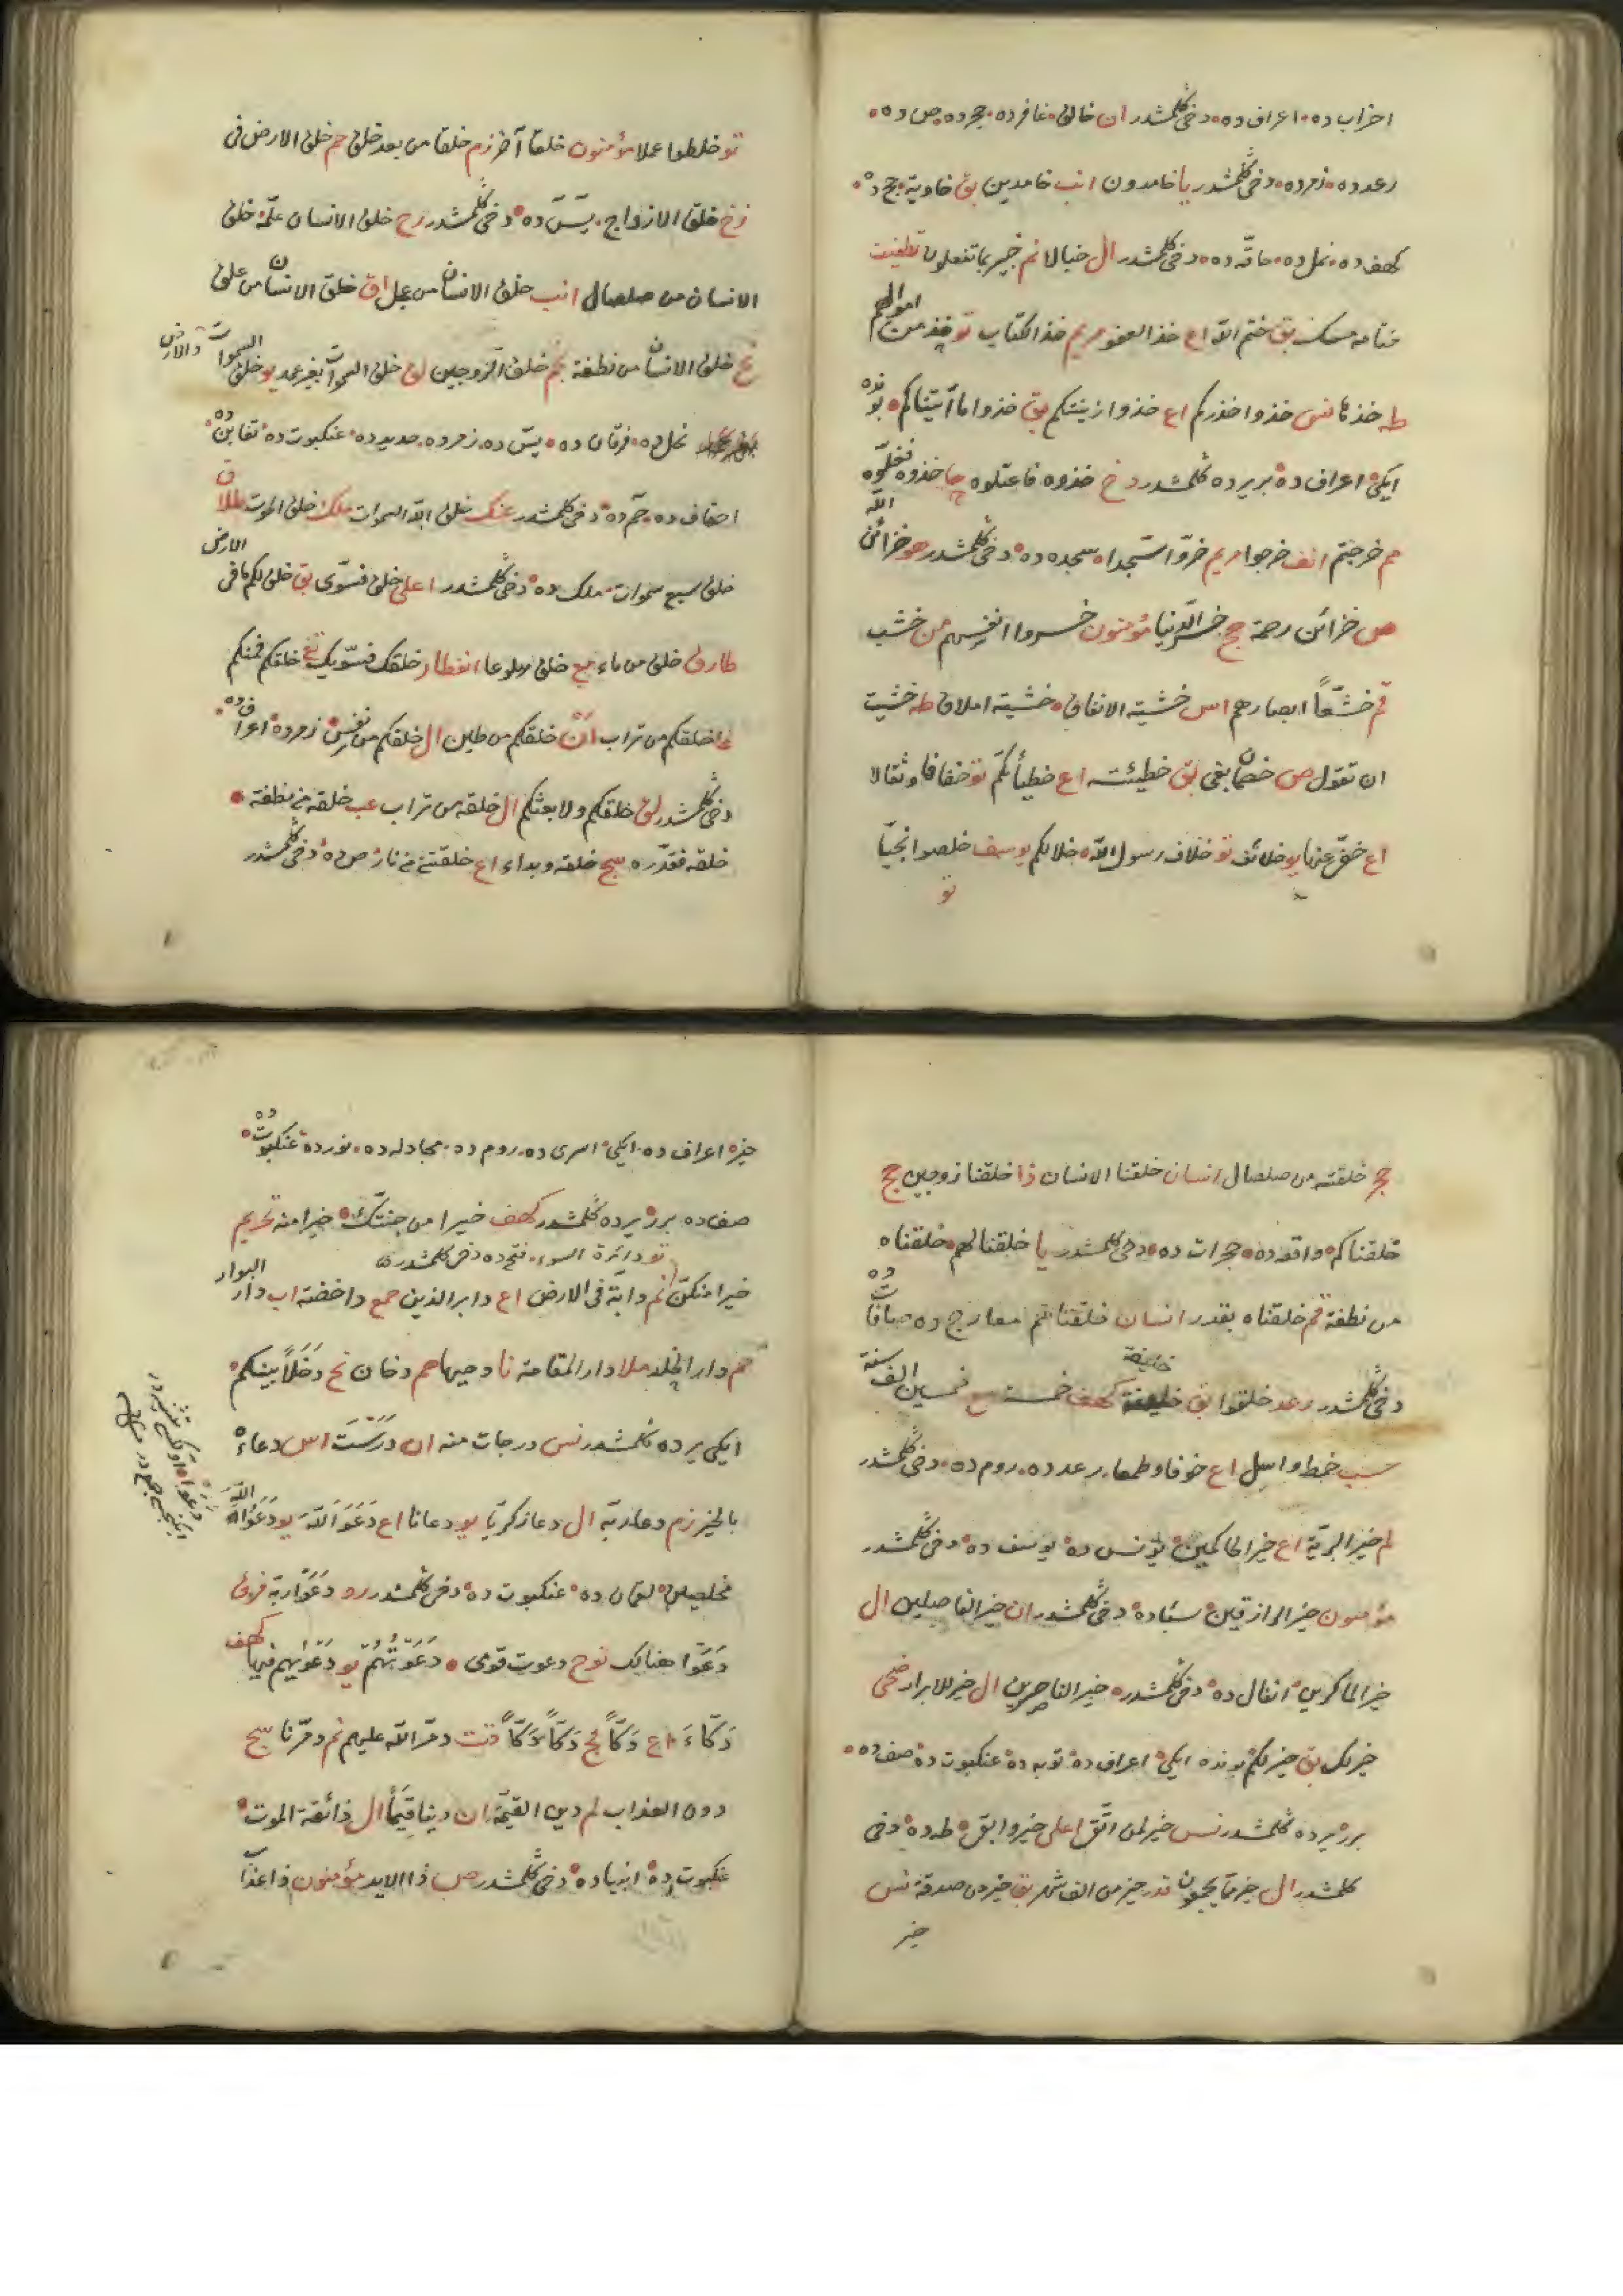 احزاب ده • اعراف ده • دخی كلمشدر ان خالق • غافرده • حجرده • ص ده •
رعد ده • زمرده • دخی كلمشدر يا خامدون انب خامدين بق خاوية • حج ده •
كهف ده • نمل ده • حاقه ده • دخی كلمشدر ال خبالا نم خبير بما تفعلون تطفيف
ختامه مسك بق ختم الله اع خذ العفو مريم خذ الكتاب تو خذ من اموالهم
طه خذها نس خذوا حذركم اع خذوا زينتكم بق خذوا ما آتيناكم • بونده
ايكى • اعراف ده • بر يرده كلمشدر دخ خذوه فاعتلوه حا خذوه فغلوه
مم خرجتم انف خرجوا مريم خروا سجدا • سجده ده • دخی كلمشدر هو خزائن الله
ص خزائن رحمة حج خسر الدنيا مؤمنون خسروا انفسهم من خشب
قم خشعا ابصارهم اس خشية الانفاق • خشية املاق طه خشيت
ان تقول ص خصمان بغى بق خطيئته اع خطيأتكم تو خفافا وثقالا
اع خفى عنها يو خلائف تو خلاف رسول الله • خلالكم يوسف خلصوا نجيا
تو
تو خلطوا عملا مؤمنون خلقا آخر زم خلقا من بعد خلق حم خلق الارض فى
زخ خلق الازواج • يس ده • دخی كلمشدر رح خلق الانسان علمه خلق
الانسان من صلصال انب خلق الانسان من عجل اق خلق الانسان من علق
نح خلق الانسان من نطفة نجم خلق الزوجين لق خلق السموات بغير عمد يو خلق السموات والارض
نحل ده • فرقان ده • يس ده • زمرده • حديد ده • عنكبوت ده • تغابن ده •
احقاف ده • حم ده • دخی كلمشدر عنك خلق الله السموات ملك خلق الموت طلاق
خلق سبع سموات • ملك ده • دخی كلمشدر اعلى خلق فسوى بق خلق لكم ما فى الارض
طارق خلق من ماء مع خلق هلوعا انفطار خلقك فسويك تغ خلقكم فمنكم
فا خلقكم من تراب ان خلقكم من طين ال خلقكم من نفس • زمرده • اعراف ده •
دخی كلمشدر لق خلقكم ولا بعثكم ال خلقه من تراب عب خلقه من نطفة •
خلقه فقدره سج خلقه وبداء اع خلقتنى من نار • ص ده • دخی كلمشدر
حج خلقته من صلصال انسان خلقنا الانسان ذا خلقنا زوجين حج
خلقناكم • واقعه ده • حجرات ده • دخی كلمشدر يا خلقنا لهم • خلقناه
من نطفة قم خلقناه بقدر انسان خلقناهم معارج ده • صافات ده
دخی كلمشدر رعد خلقوا بق خليفة كهف خمسة مع خمسين الف سنة
سب خمط واثل اع خوفا وطمعا • رعد ده • روم ده • دخی كلمشدر
لم خير البرية اع خير الحاكمين • يونس ده • يوسف ده • دخی كلمشدر
مؤمنون خير الرازقين • سباده • دخی كلمشدر ان خير الفاصلين ال
خير الماكرين • انفال ده • دخی كلمشدر • خير الناصرين ال خير للابرار ضحى
خير لك بق خير لكم بونده ايكى • اعراف ده • توبه ده • عنكبوت ده • صف ده •
برر يرده كلمشدر نس خير لمن اتقى اعلى خير وابقى • طه ده • دخی
كلمشدر ال خير مما يجمعون قدر خير من الف شهر بق خير من صدقة نس
خير
خير • اعراف ده • ايكى • اسرى ده • روم ده • مجادله ده • نورده • عنكبوت ده •
صف ده • برر يرده كلمشدر كهف خيرا من جنتك • خيرا منه تحريم
تو دائرة السوء • فتح ده دخی كلمشدر
خيرا منكن نم دابة فى الارض اع دابر الذين حمع داحضة اب دار البوار
حم دار الخلد ملا دار المقامة نا دحيها حم دخان نح دخلا بينكم •
ايكى يرده كلمشدر نس درجات منه ان درست اس دعاءه
بالخير زم دعا ربه ال دعا زكريا يو دعانا اع دعوا الله يو دعوا الله
مخلصين • لقمان ده • عنكبوت ده • دخی كلمشدر رو دعوا ربهم فرق
دعوا هنالك نوح دعوت قومى • دعوتهم يو دعويهم فيها كهف
دكاء اع دكا فج دكا دكا قت دمر الله عليهم نم دمرنا سج
دون العذاب لم دين القيمة ان دينا قيما ال ذائقة الموت •
عنكبوت ده • انبياده • دخی كلمشدر ص ذا الايد مؤمنون ذا عذاب